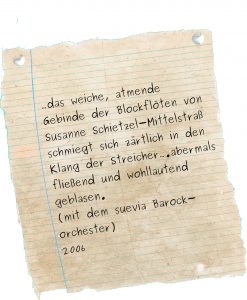 ..das weiche, atmende
Gebinde der Blockflöten von
Susanne Schietzel-Mittelstraß
schmiegt sich zärtlich in den
Klang der Streicher...abermals
fließend und wohllautend
geblasen.
(mit dem suevia Barock-
orchester)
2006